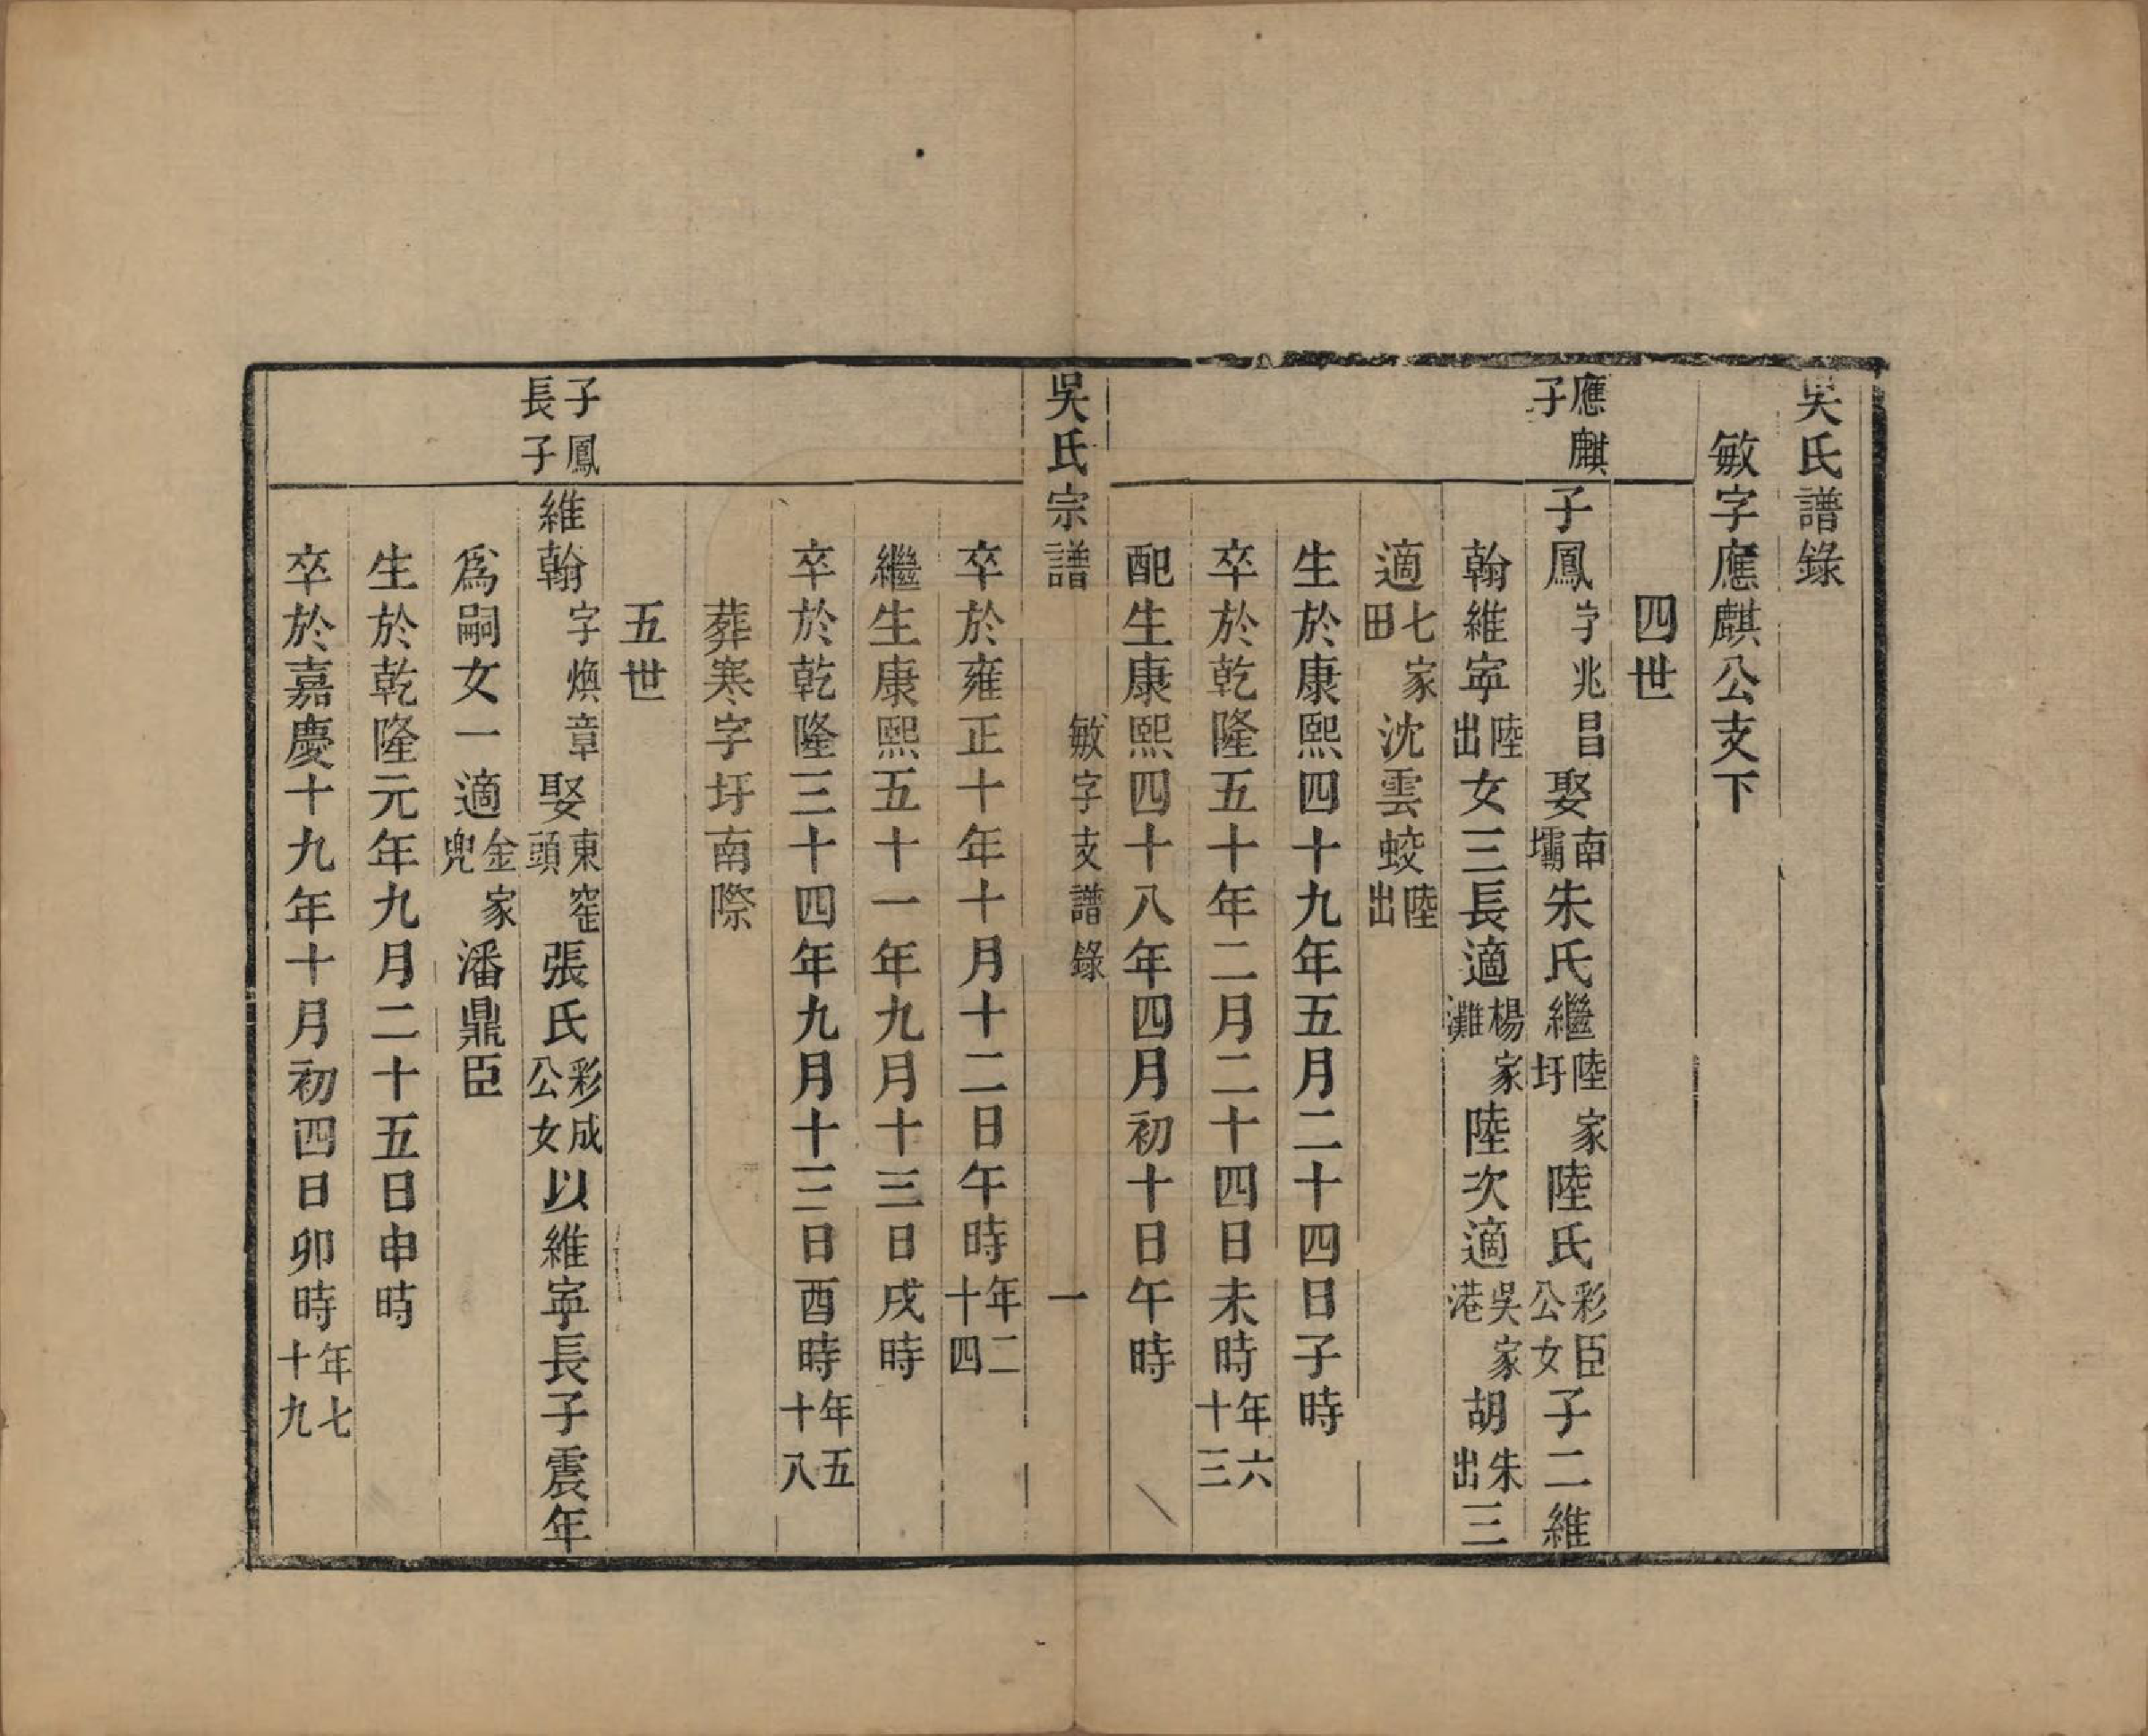 吳氏譜錄
敏字應麒公支下
四世
應麒子
子鳳字兆昌娶南壩朱氏繼陸家圩陸氏彩臣公女子二維
翰維寧陸出女三長適楊家灘陸次適吳家港胡朱出三
適七家田沈雲蛟陸出
生於康熙四十九年五月二十四日子時
卒於乾隆五十年二月二十四日未時年六十三
配生康熙四十八年四月初十日午時
吳氏宗譜 敏字支譜錄 一
卒於雍正十年十月十二日午時年二十四
繼生康熙五十一年九月十三日戌時
卒於乾隆三十四年九月十三日酉時年五十八
葬寒字圩南際
五世
子鳳長子
維翰字煥章娶東窑頭張氏彩成公女以維寧長子震年
爲嗣女一適金家兜潘鼎臣
生於乾隆元年九月二十五日申時
卒於嘉慶十九年十月初四日卯時年七十九